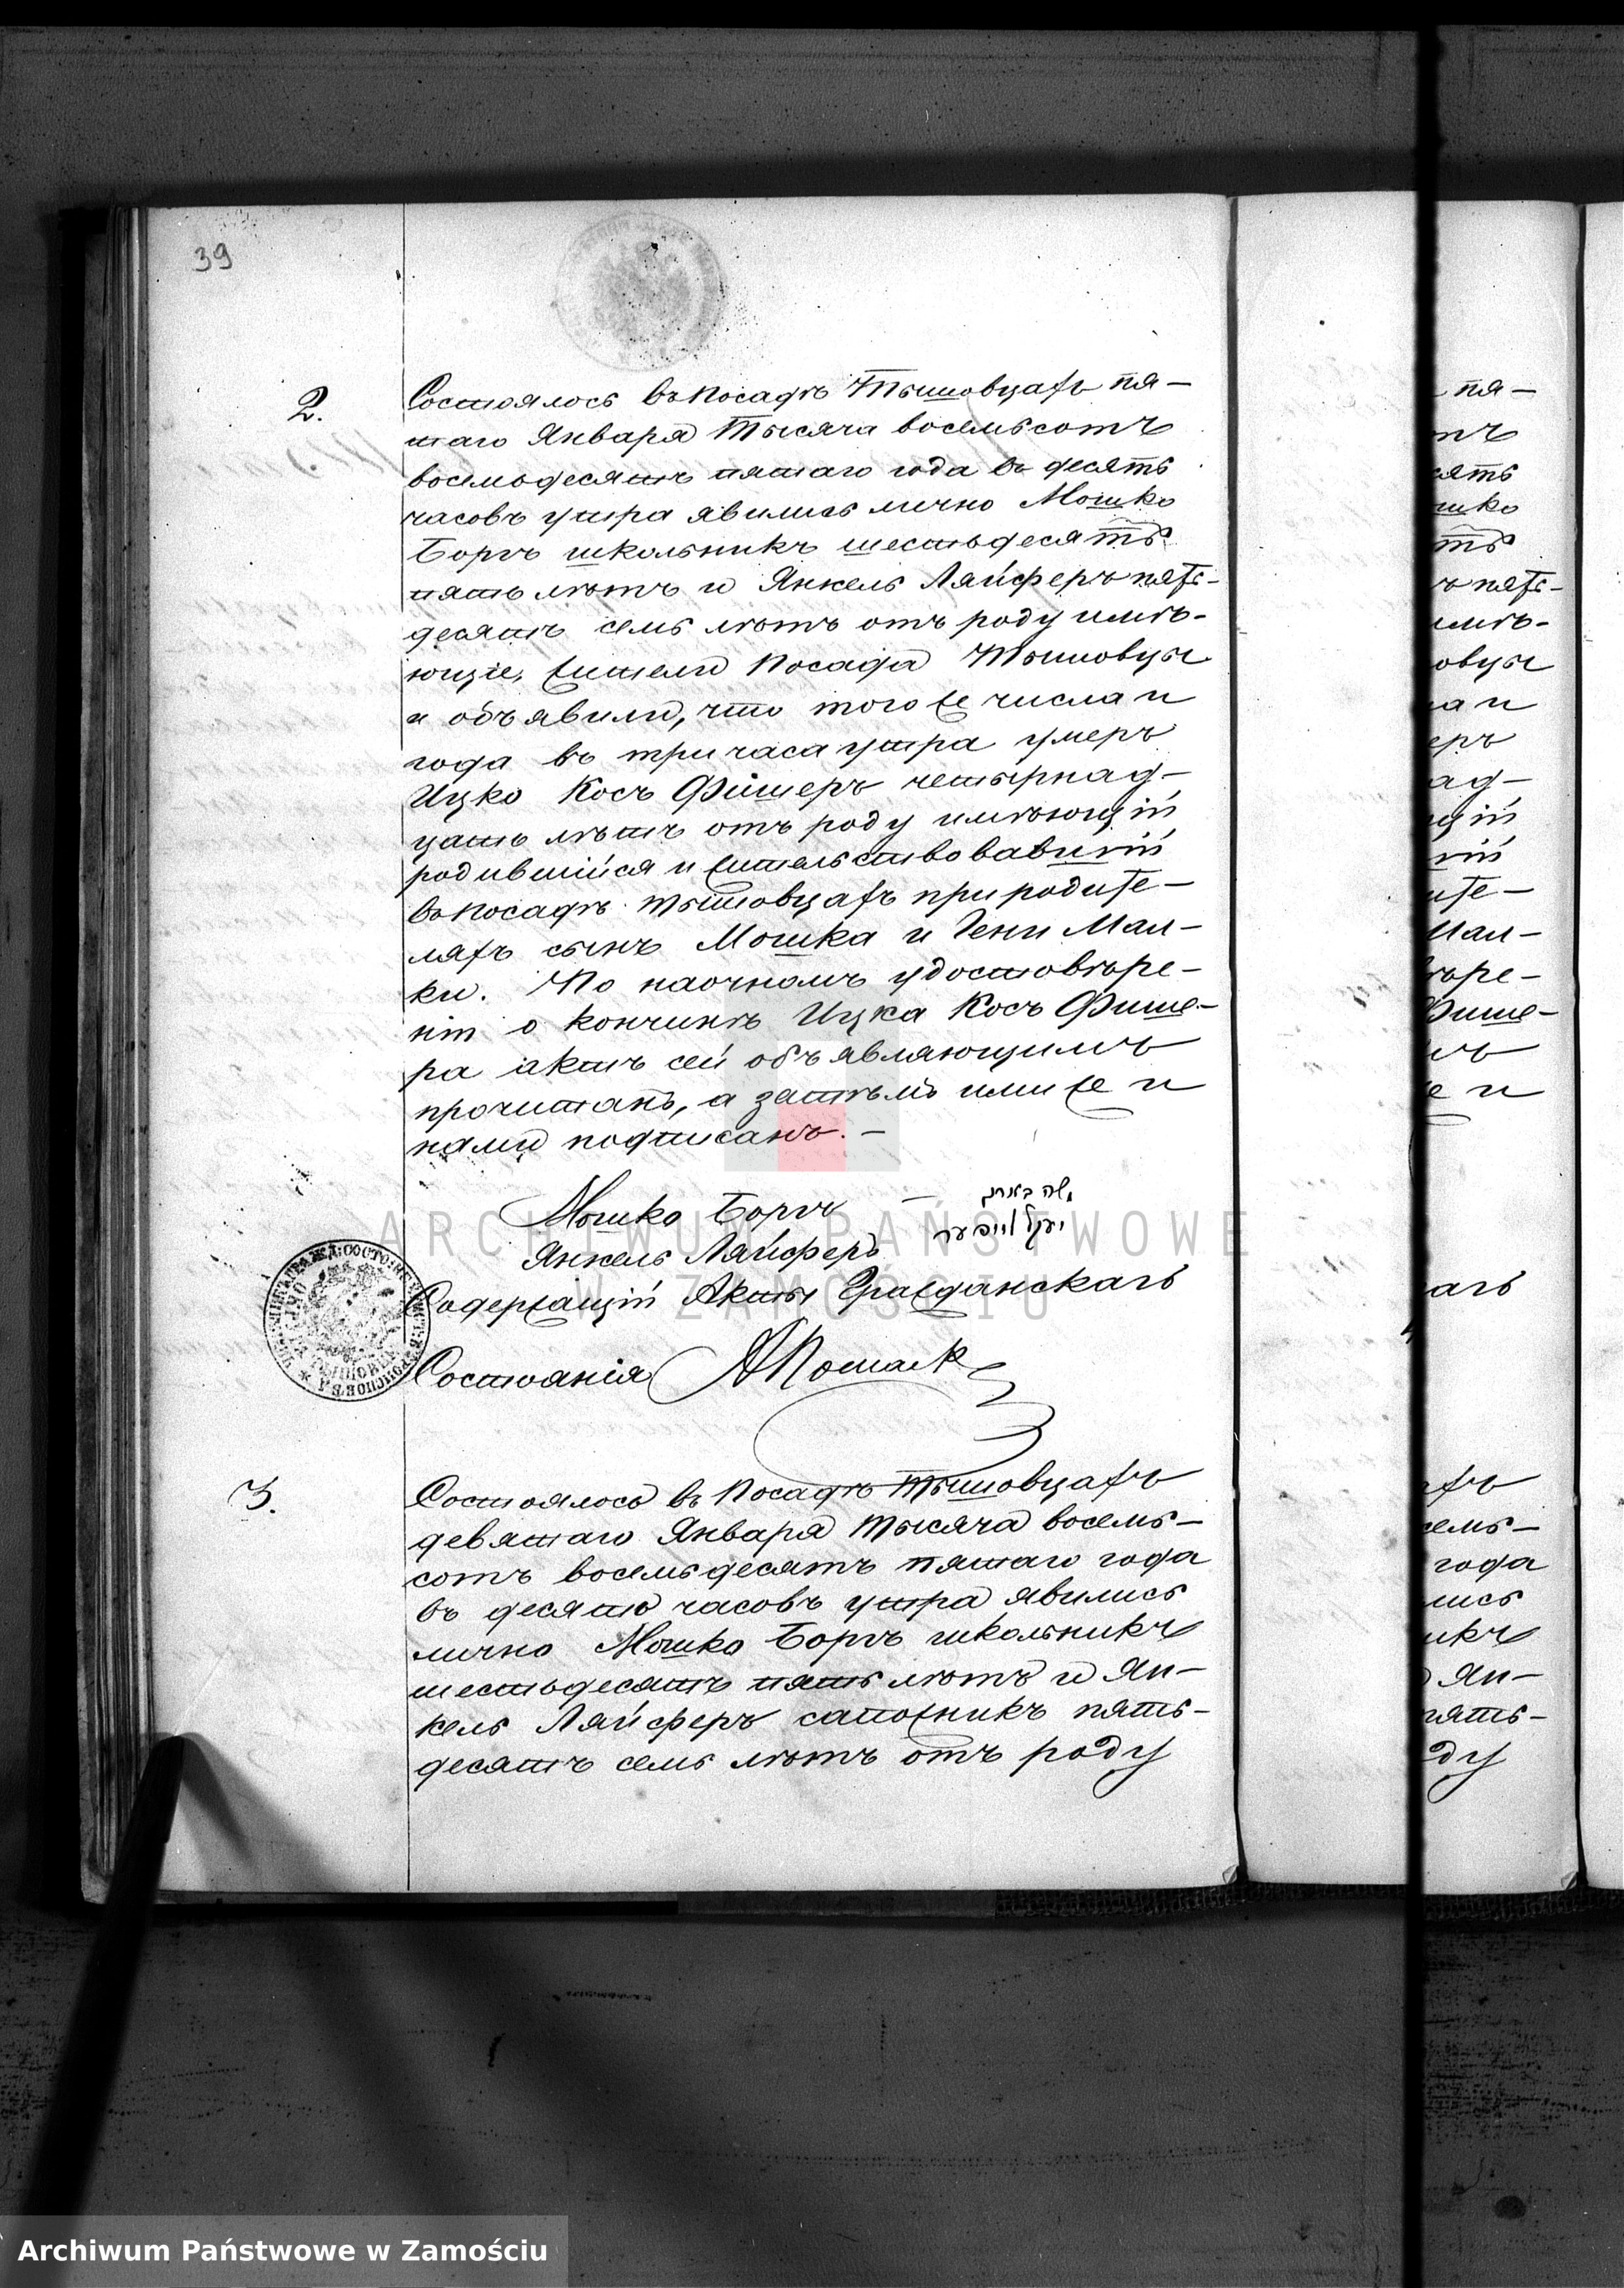 39
2.
Состоялось въ посадѣ Тышовцахъ пя-
таго Января тысяча восемьсотъ
восемьдесятъ пятаго года въ десять
часовъ утра явились лично Мошко
Боргъ школьникъ шестьдесятъ
пять лѣтъ и Янкель Ляйферъ пять-
десятъ семь лѣтъ отъ роду имѣ-
ющіе, жители посада Тышовцы
и объявили, что того же числа и
года въ три часа утра умеръ
Ицко Косъ Фишеръ четырнад-
цать лѣтъ отъ роду имѣющій
родившійся и жительствовавшій
въ посадѣ Тышовцахъ при родите-
ляхъ сынъ Мошка и Гени Мал-
ки. По наочномъ удостовѣре-
ніи о кончинѣ Ицка Косъ Фише-
ра актъ сей объявляющимъ
прочитанъ, а затѣмъ ими же и
нами подписанъ. —
Мошко Боргъ — משה בארג
Янкель Ляйферъ יענקל לייפער
Содержащій Акты Гражданскаго
Состоянія
3.
Состоялось въ посадѣ Тышовцахъ
девятаго Января тысяча восемь-
сотъ восемьдесятъ пятаго года
въ десять часовъ утра явились
лично Мошко Боргъ школьникъ
шестьдесятъ пять лѣтъ и Ян-
кель Ляйферъ сапожникъ пять-
десятъ семь лѣтъ отъ роду
ARCHIWUM PAŃSTWOWE
W ZAMOŚCIU
Archiwum Państwowe w Zamościu